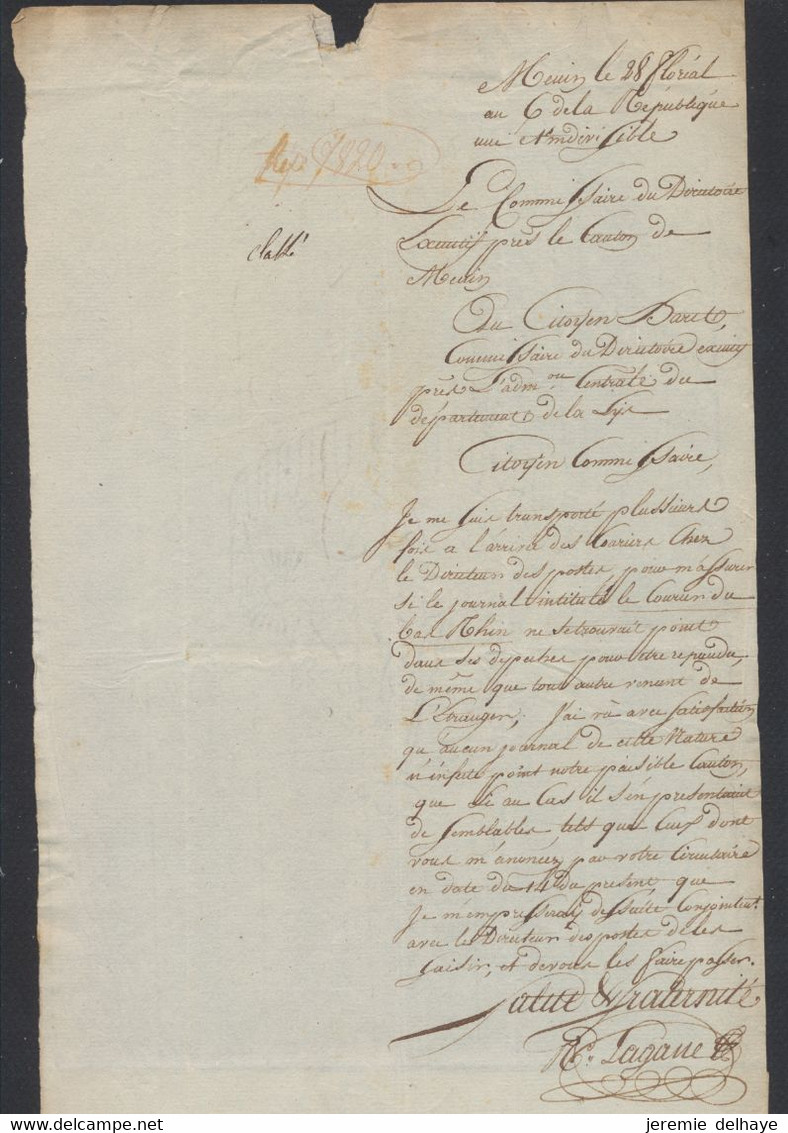 Menin le 28 floréal
an 6 de la République
une & indivisible
Rep. 7820
Le Commissaire du Directoire
Executif près le Canton de
classé
Menin
Au Citoyen Baret,
Commissaire du Directoire executif
près L'adm.on Centrale du
département de la Lys
Citoyen Commissaire,
Je me suis transporté plussieurs
fois a l'arrivé des Couriers Chez
le Directeur des postes, pour m'assurer
si le journal intitulé le Courier du
bas Rhin ne se trouvait point
dans ses depeches pour être repandu,
de même que tout autre venant de
L'Etranger, J'ai vû avec satisfaction
qu'aucun journal de cette Nature
n'infecte point notre paisible Canton,
que si au Cas il s'en presentaient
de semblables, tels que Ceux dont
vous m'anoncez par votre Circulaire
en date du 14 du present, que
Je m'empresseray de suite Conjointem.t
avec le Directeur des postes de les
saisir, et de vous les faire passer.
Salut & fraternité
Lagane
jeremie delhaye